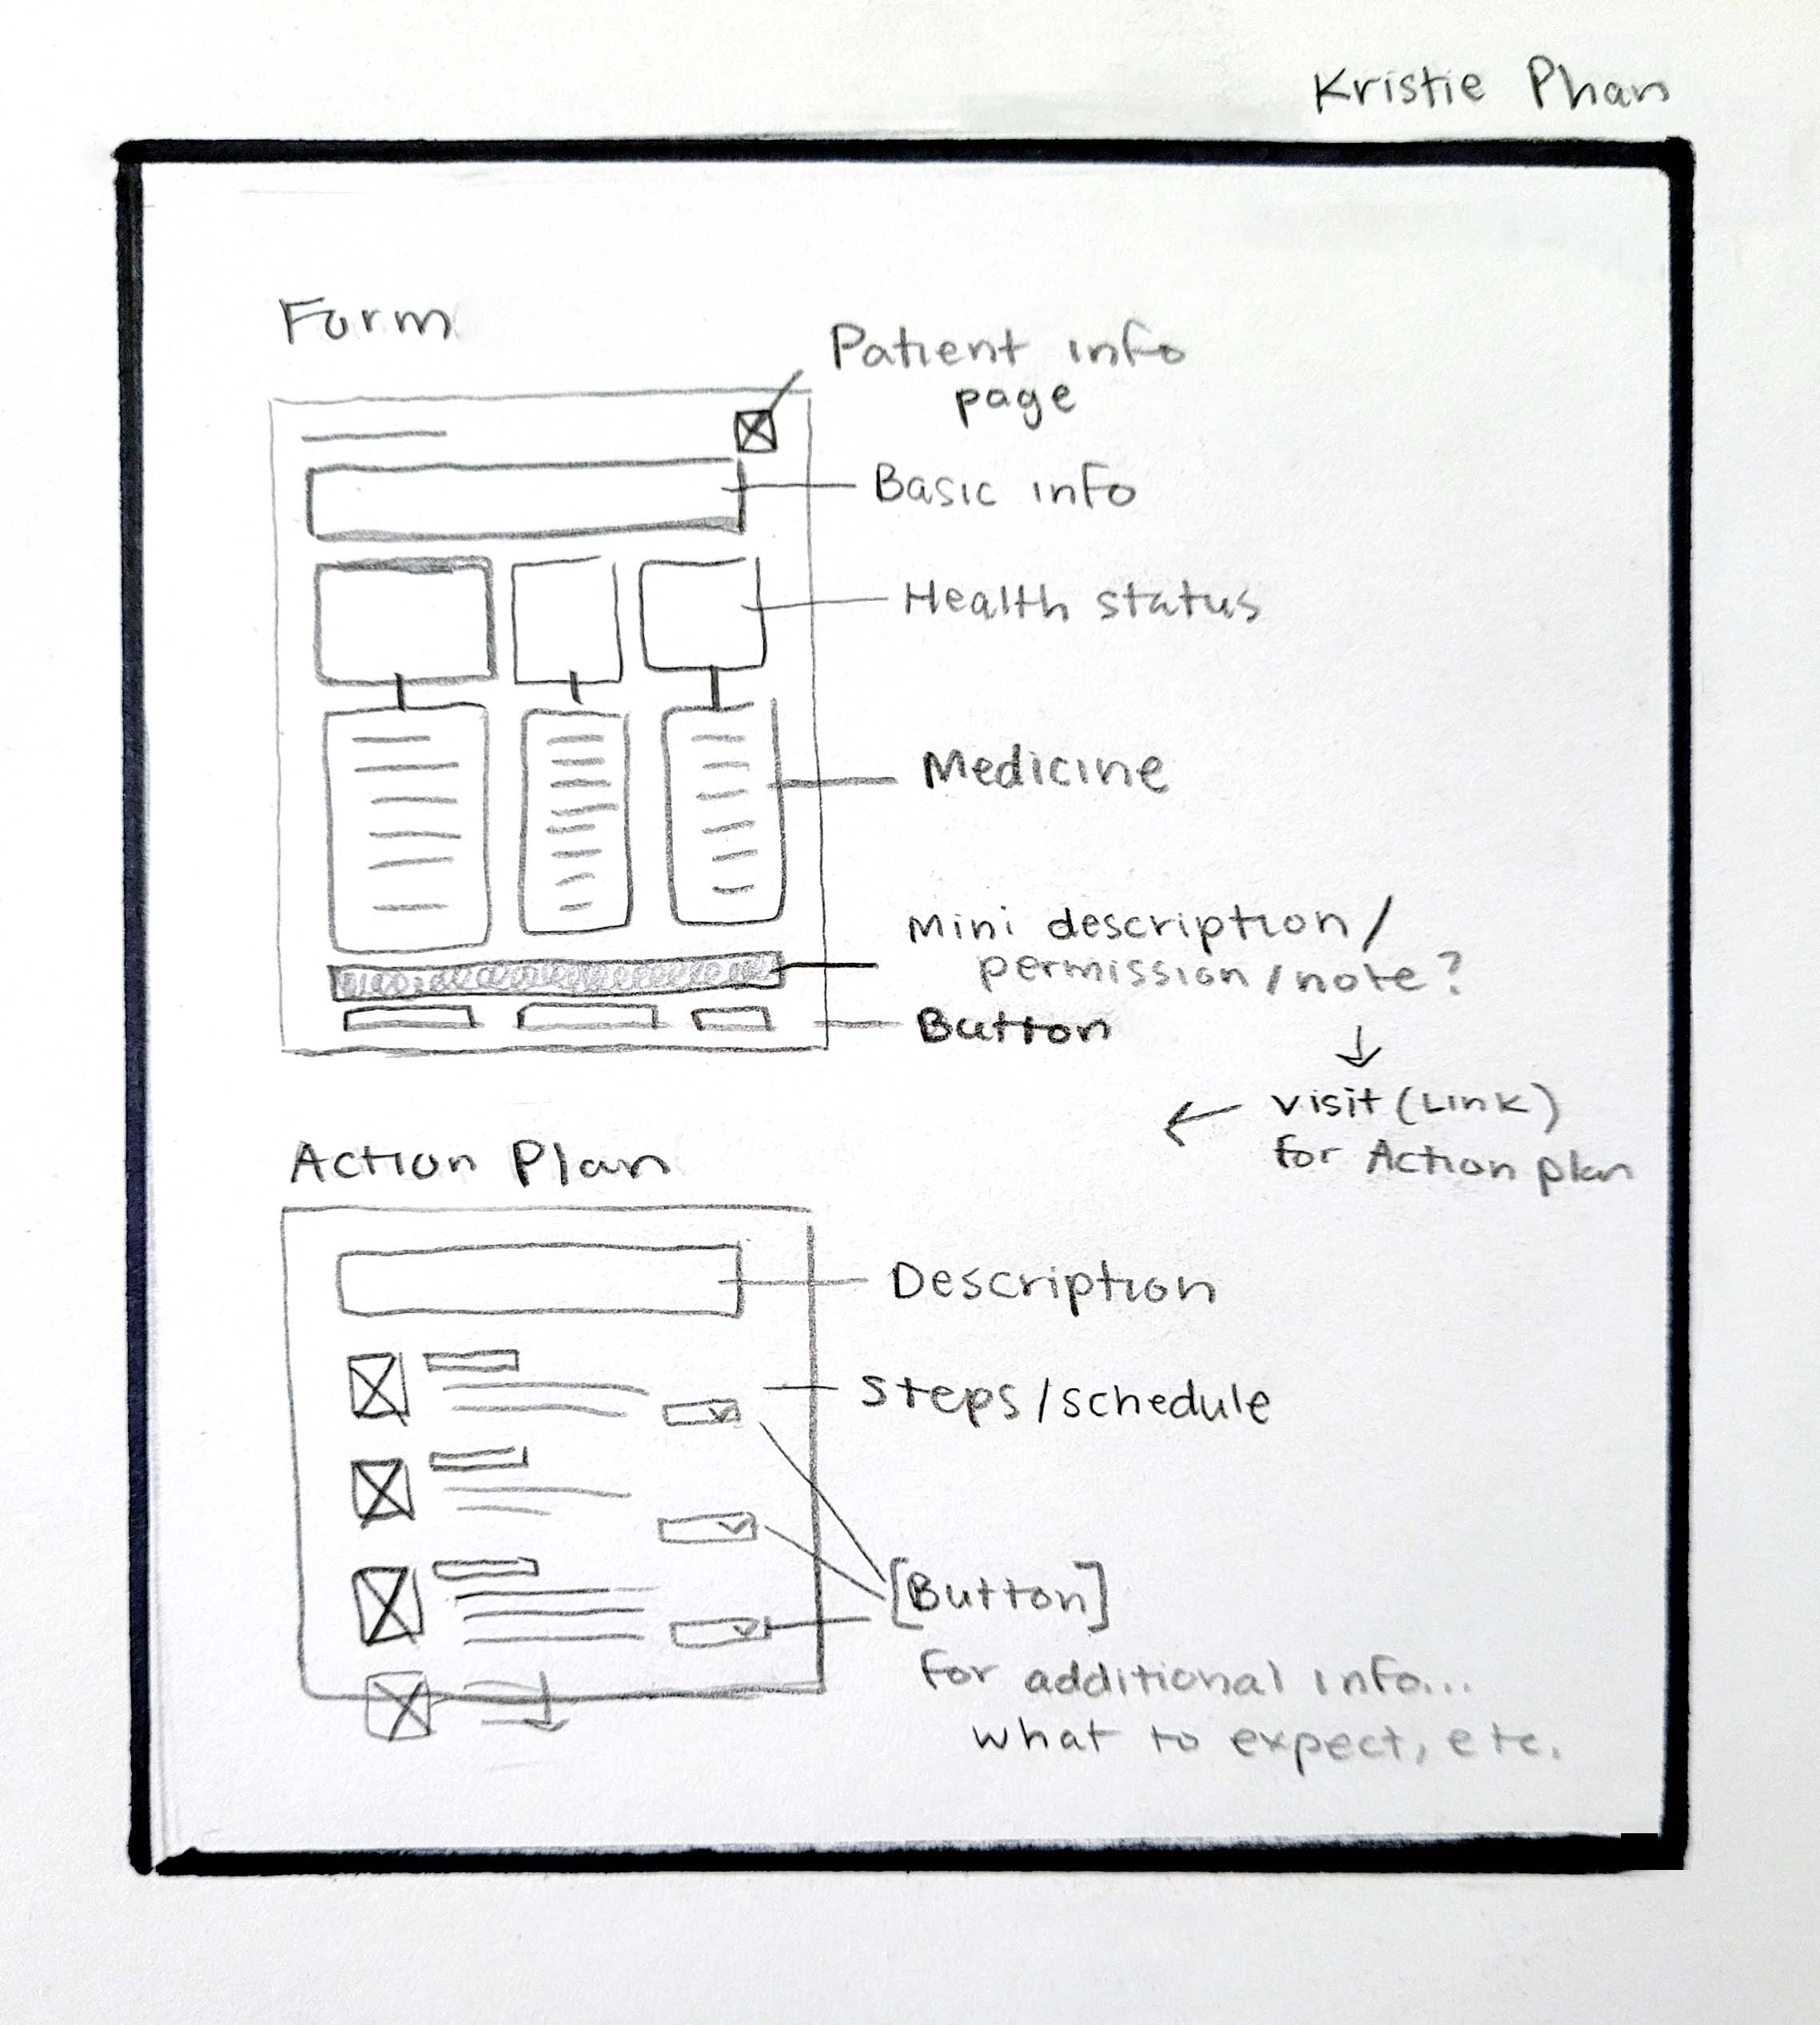 Kristie Phan
Form
Patient info
page
Basic info
Health status
Medicine
Mini description/
permission/note?
Button
visit (Link)
for Action plan
Action Plan
Description
Steps/schedule
[Button]
for additional info...
what to expect, etc.